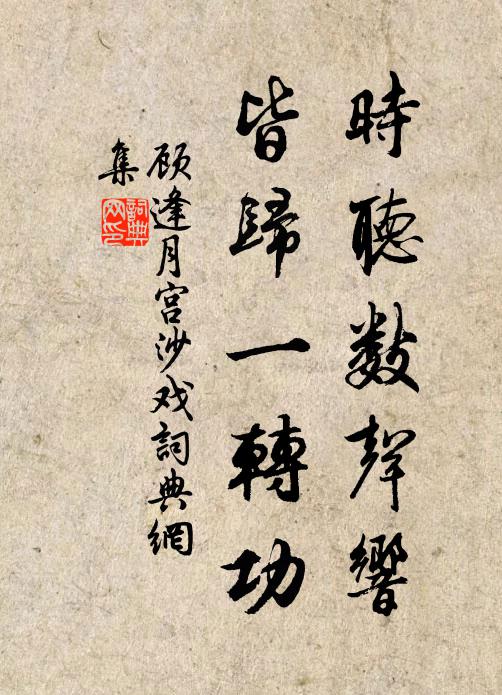 時聽數聲響
皆歸一轉功
顾逢月宫沙戏詞典網
集
詞典网印